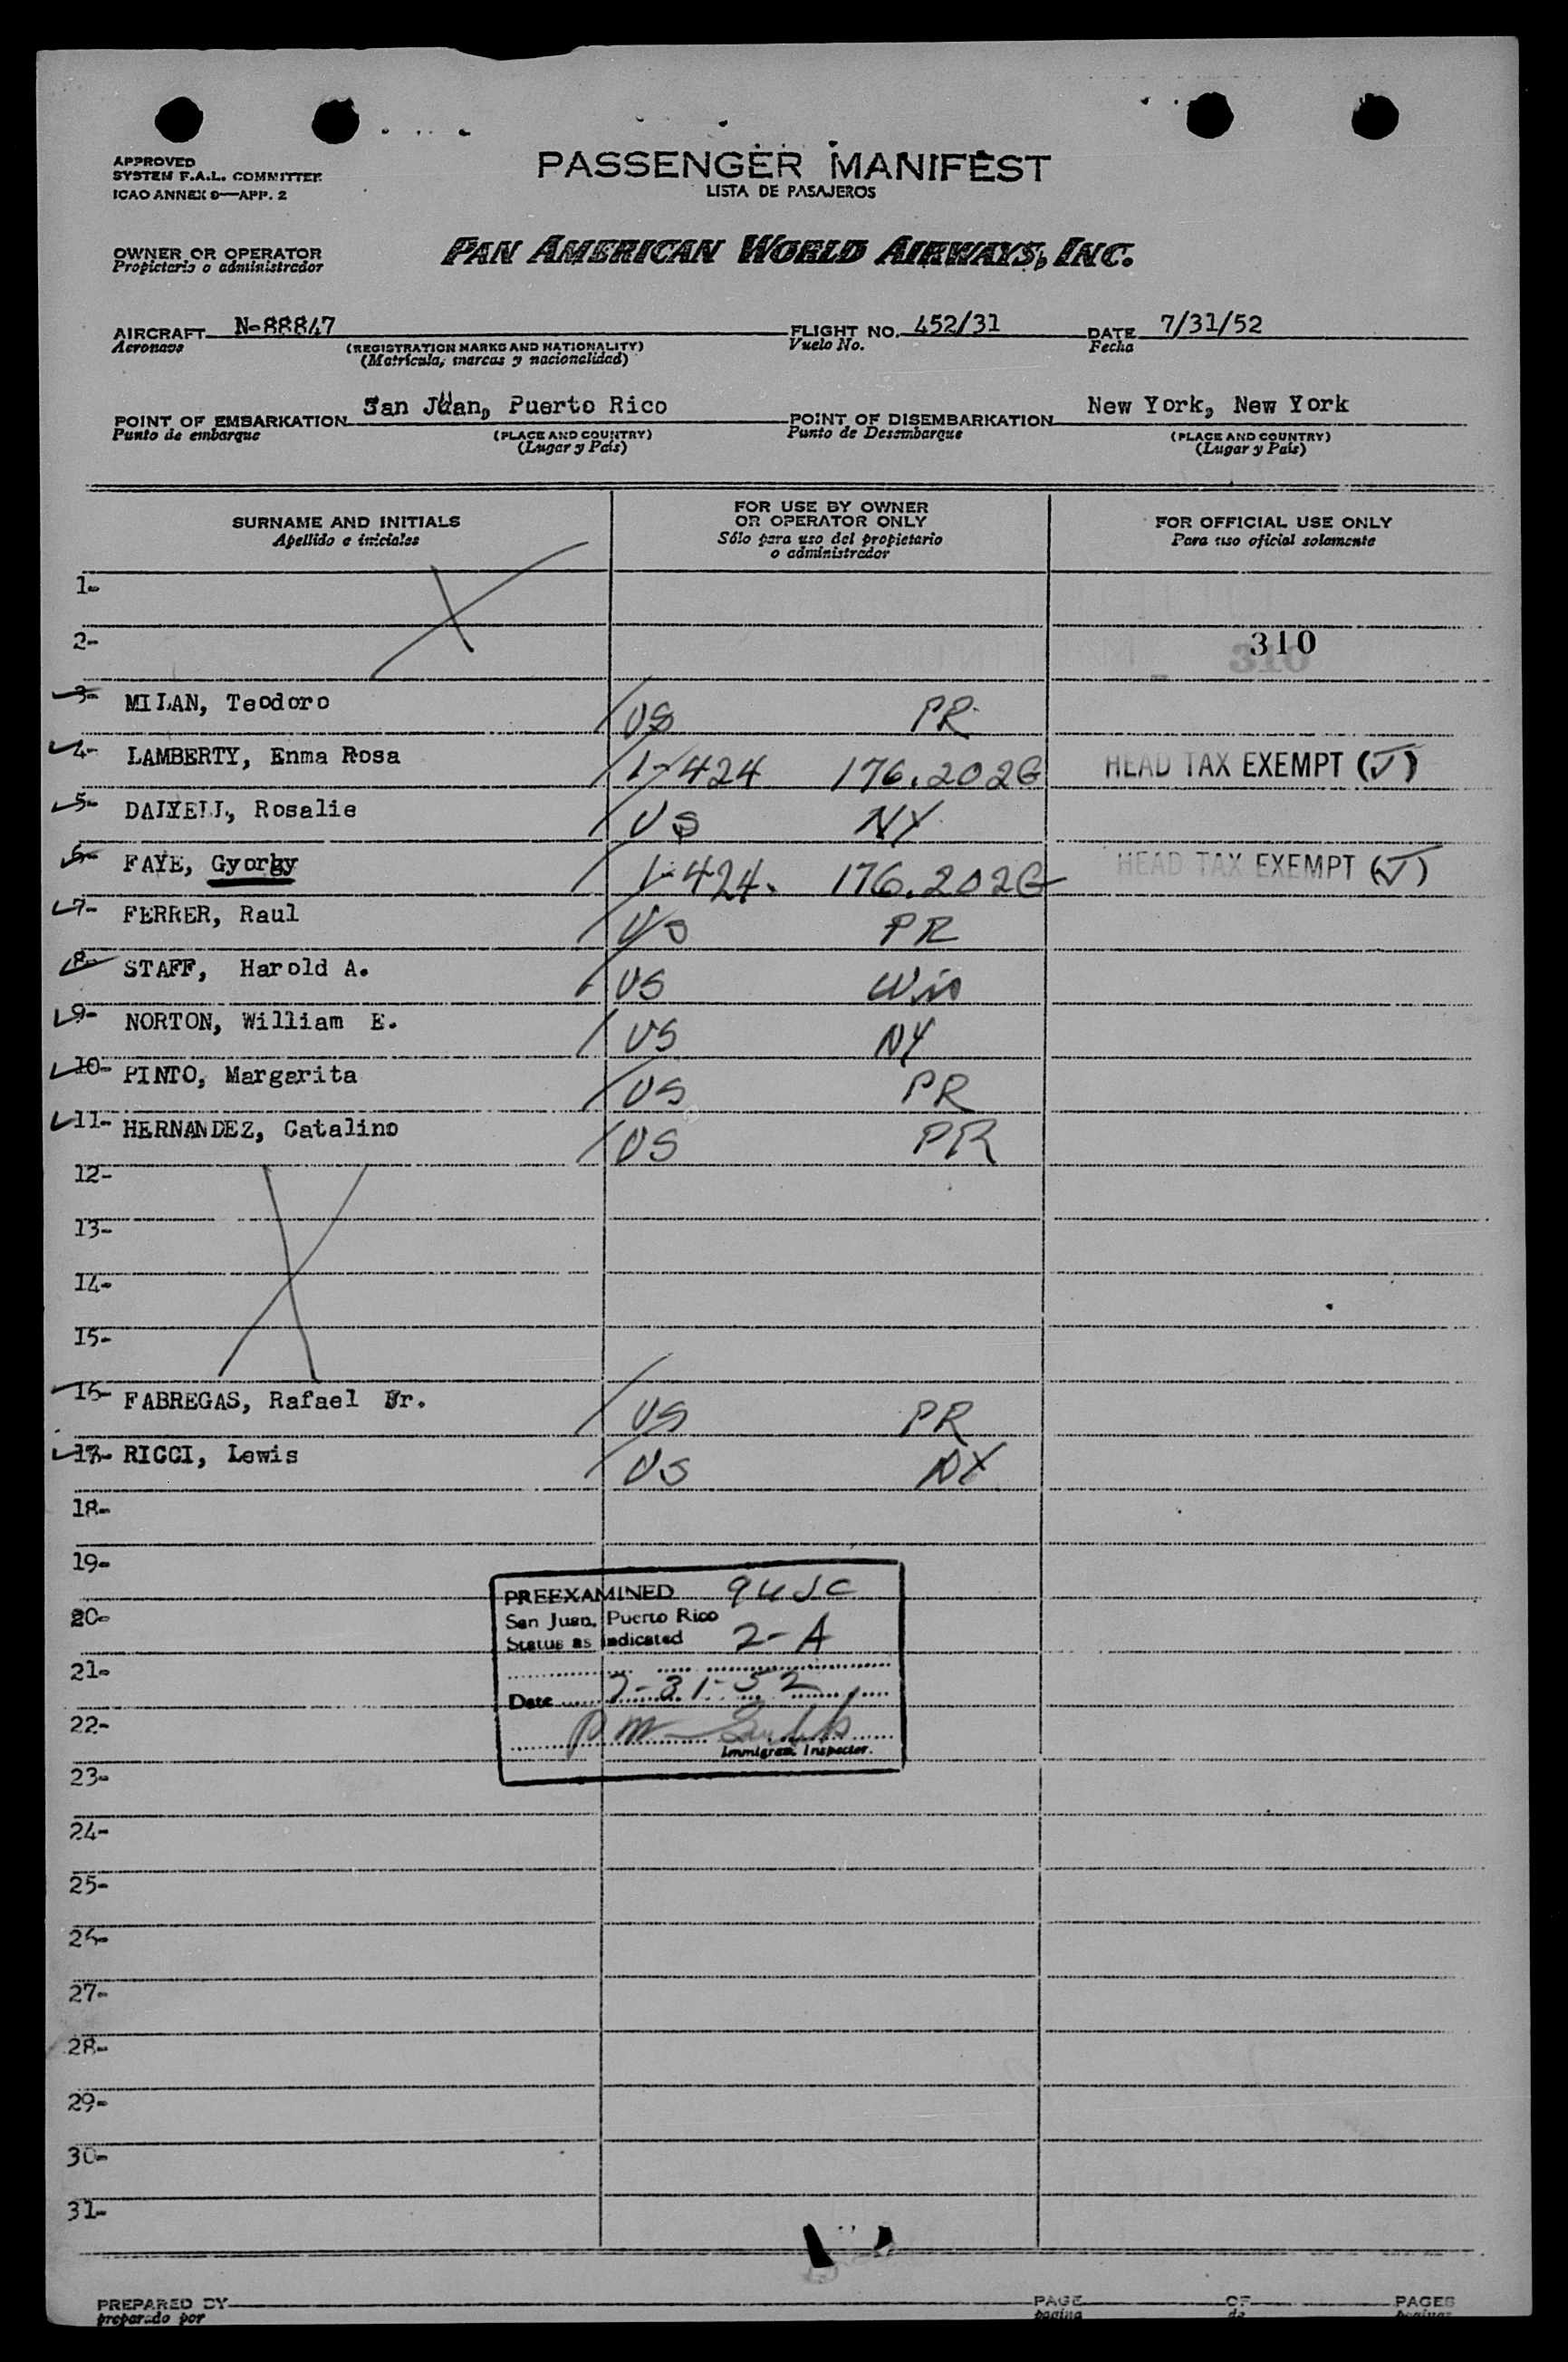 APPROVED
SYSTEM F.A.L. COMMITTEE
ICAO ANNEX 9—APP. 2
PASSENGER MANIFEST
LISTA DE PASAJEROS
OWNER OR OPERATOR
Propietario o administrador
PAN AMERICAN WORLD AIRWAYS, INC.
AIRCRAFT N-88847 FLIGHT NO. 452/31 DATE 7/31/52
Aeronave (REGISTRATION MARKS AND NATIONALITY) Vuelo No. Fecha
(Matrícula, marcas y nacionalidad)
POINT OF EMBARKATION San Juan, Puerto Rico POINT OF DISEMBARKATION New York, New York
Punto de embarque (PLACE AND COUNTRY) Punto de Desembarque (PLACE AND COUNTRY)
(Lugar y País) (Lugar y País)
SURNAME AND INITIALS FOR USE BY OWNER OR OPERATOR ONLY FOR OFFICIAL USE ONLY
Apellido e iniciales Sólo para uso del propietario o administrador Para uso oficial solamente
1-
2- 310
3- MILAN, Teodoro US PR
4- LAMBERTY, Enma Rosa 1-424 176.202G HEAD TAX EXEMPT (J)
5- Rosalie US NY
6- FAYE, Gyorgy 1-424. 176.202G HEAD TAX EXEMPT (J)
7- FERRER, Raul US PR
8- STAFF, Harold A. US Wis
9- NORTON, William E. US NY
10- PINTO, Margarita US PR
11- HERNANDEZ, Catalino US PR
12-
13-
14-
15-
16- FABREGAS, Rafael Jr. US PR
17- RICCI, Lewis US NY
18-
19-
PREEXAMINED
20- San Juan, Puerto Rico
Status as indicated 2-A
21-
Date 7-31-52
22-
Immigrant Inspector.
23-
24-
25-
26-
27-
28-
29-
30-
31-
PREPARED BY PAGE OF PAGES
preparado por pagina de paginas